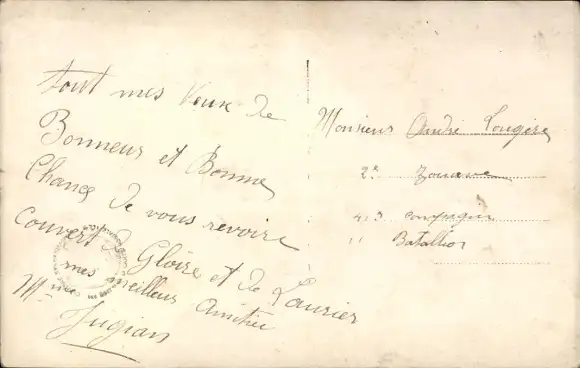 tout mes veux de
Bonneur et Bonne
Chance de vous revoire
couvert de Gloire et de Laurier
mes meilleur Amitiée
Mme Jugian
Monsieur André Lougère
2e zouave
4e compagnie
11 Batallion